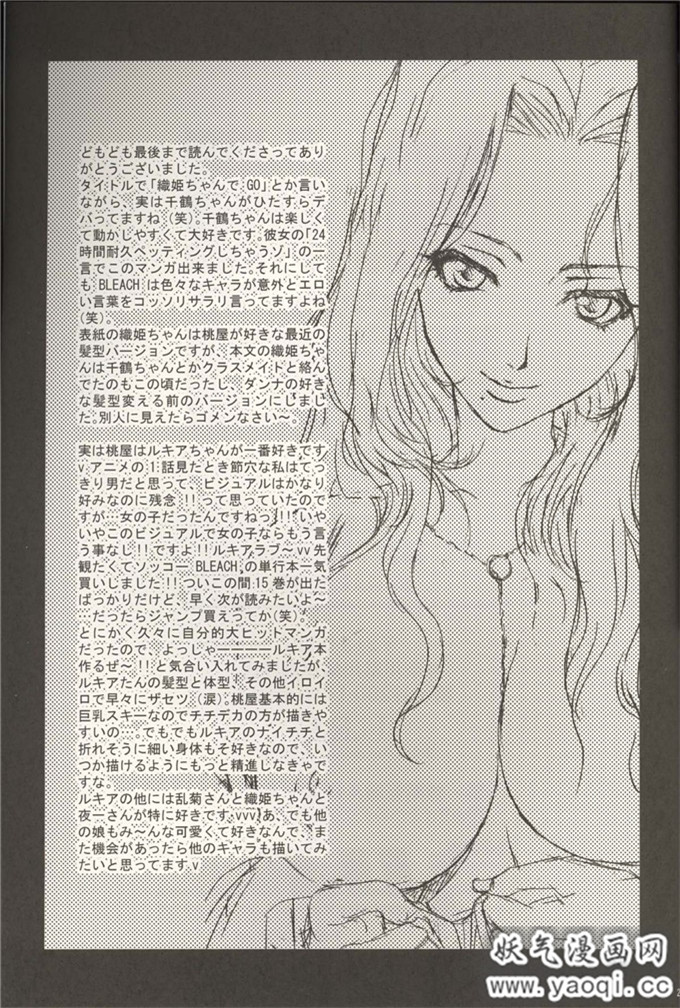 どもども最後まで読んでくださってあり
がとうございました。
タイトルで「織姫ちゃんで GO」とか言い
ながら、実は千鶴ちゃんがひたすらデ
バってますね (笑)。千鶴ちゃんは楽しく
て動かしやすくて大好きです。彼女の「24
時間耐久ペッティングしちゃうゾ」の一
言でこのマンガ出来ました。それにして
も BLEACH は色々なキャラが意外とエロ
い言葉をコッソリサラリ言ってますよね
(笑)。
表紙の織姫ちゃんは桃屋が好きな最近の
髪型バージョンですが、本文の織姫ちゃ
んは千鶴ちゃんとかクラスメイトと絡ん
でたのもこの頃だったし、ダンナの好き
な髪型変える前のバージョンにしまし
た。別人に見えたらゴメンなさい〜。
実は桃屋はルキアちゃんが一番好きです
v アニメの 1 話見たとき節穴な私はてっ
きり男だと思って、ビジュアルはかなり
好みなのに残念!!って思っていたので
すが…女の子だったんですねっ!!いや
いやこのビジュアルで女の子ならもう言
う事なし!!ですよ!!ルキアラブ〜vv 先
観たくてソッコー BLEACH の単行本一気
買いしました!!ついこの間 15 巻が出た
ばっかりだけど、早く次が読みたいよ〜
…だったらジャンプ買えってか(笑)。
とにかく久々に自分的大ヒットマンガ
だったので、よっしゃーーーールキア本
作るぜ〜!!と気合い入れてみましたが、
ルキアたんの髪型と体型、その他イロイ
ロで早々にザセツ (涙)。桃屋基本的には
巨乳スキーなのでチチデカの方が描きや
すいの…。でもでもルキアのナイチチと
折れそうに細い身体もそ好きなので、い
つか描けるようにもっと精進しなきゃで
すな。
ルキアの他には乱菊さんと織姫ちゃんと
夜一さんが特に好きです vvv あ、でも他
の娘もみ〜んな可愛くて好きなんで、ま
た機会があったら他のキャラも描いてみ
たいと思ってます v
妖气漫画网
www.yaoqi.cc